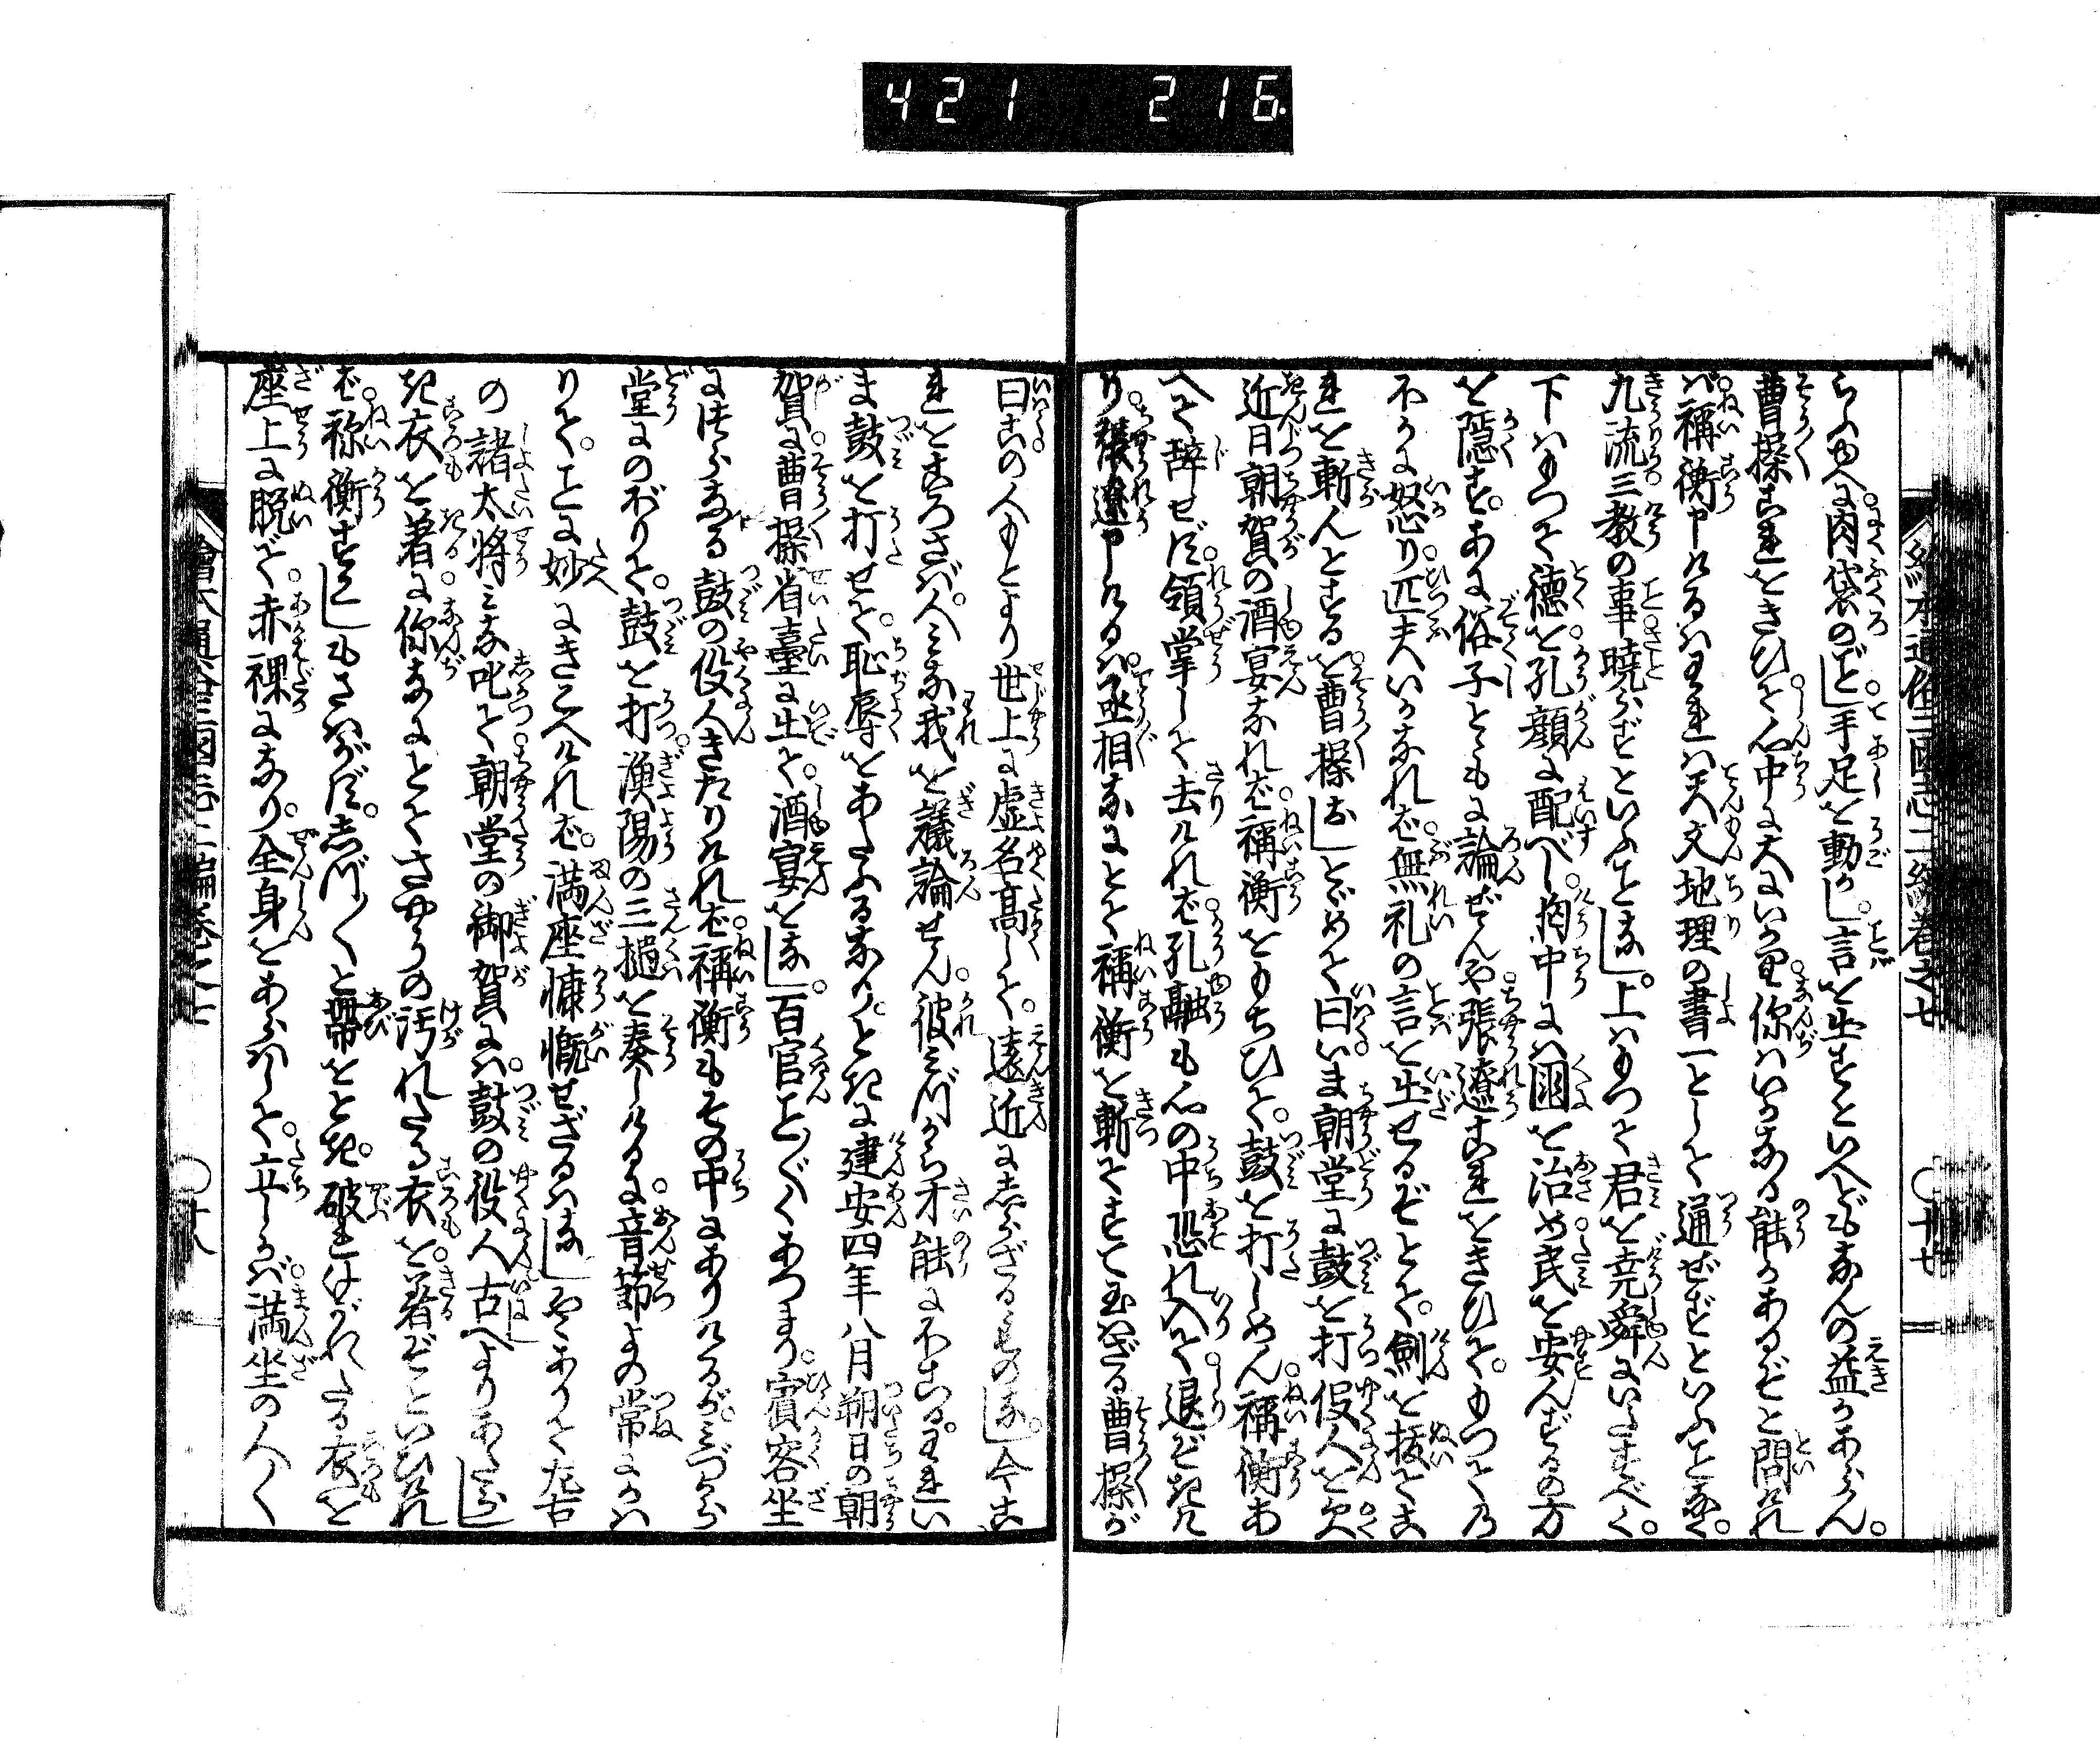 421 216
繪本通俗三國志二編卷之七 〇十七
らふゆへに肉袋のごとし手足を動かし言を出すといへどもなんの益かあらん。
曹操これをきひて心中に大にいかり你はいかなる能かあるぞと問けれ
ば禰衡申けるはわれは天文地理の書一として通ぜずといふことなく。
九流三教の事曉らずといふことなし。上はもつて君を尭舜にいたすべく。
下はもつて徳を孔顔に配べし胸中には國を治め民を安んずるの方
を隠す。あに俗子とともに論ぜんや張遼これをきひて。もつての
外に怒り匹夫いかなれば無礼の言を出せるぞとて。劍を抜てこ
れを斬んとするを曹操おしとゞめて曰いま朝堂に鼓を打役人を欠
近日朝賀の酒宴なれば禰衡をもちひて。鼓を打しめん禰衡あ
へて辞せず領掌して去ければ孔融も心の中恐れ入て退ぞきけ
り。張遼申しけるは。丞相なにとて禰衡を斬てすて玉はざる曹操が
曰この人もとより世上に虚名高して。遠近にしらざるものなし。今こ
れをころさば。人みな我を議論せん。彼みづから才能にほこる。われい
ま鼓を打せて。恥辱をあたふるなり。ときに建安四年八月朔日の朝
賀に曹操省臺に出て。酒宴をなし。百官ことごとくあつまり。賓客坐
につらなる鼓の役人きたりければ。禰衡もその中にありけるが。みづから
堂にのぼりて。鼓を打漁陽の三撾を奏しけるに。音節よの常にかは
りて。ことに妙にきこへければ。満座慷慨せざるはなし。やゝありて左右
の諸大将みな叱て朝堂の御賀には。鼓の役人古へよりあたらし
き衣を著に你なにとてさやうの汚れたる衣を。著ぞといひけれ
ば。禰衡すこしもさはがず。しづしづと帯をとき。破れけがれたる衣を
座上に脱で。赤裸になり。全身をあらはして。立しかば満坐の人〱
繪本通俗三國志二編卷之七 〇十八